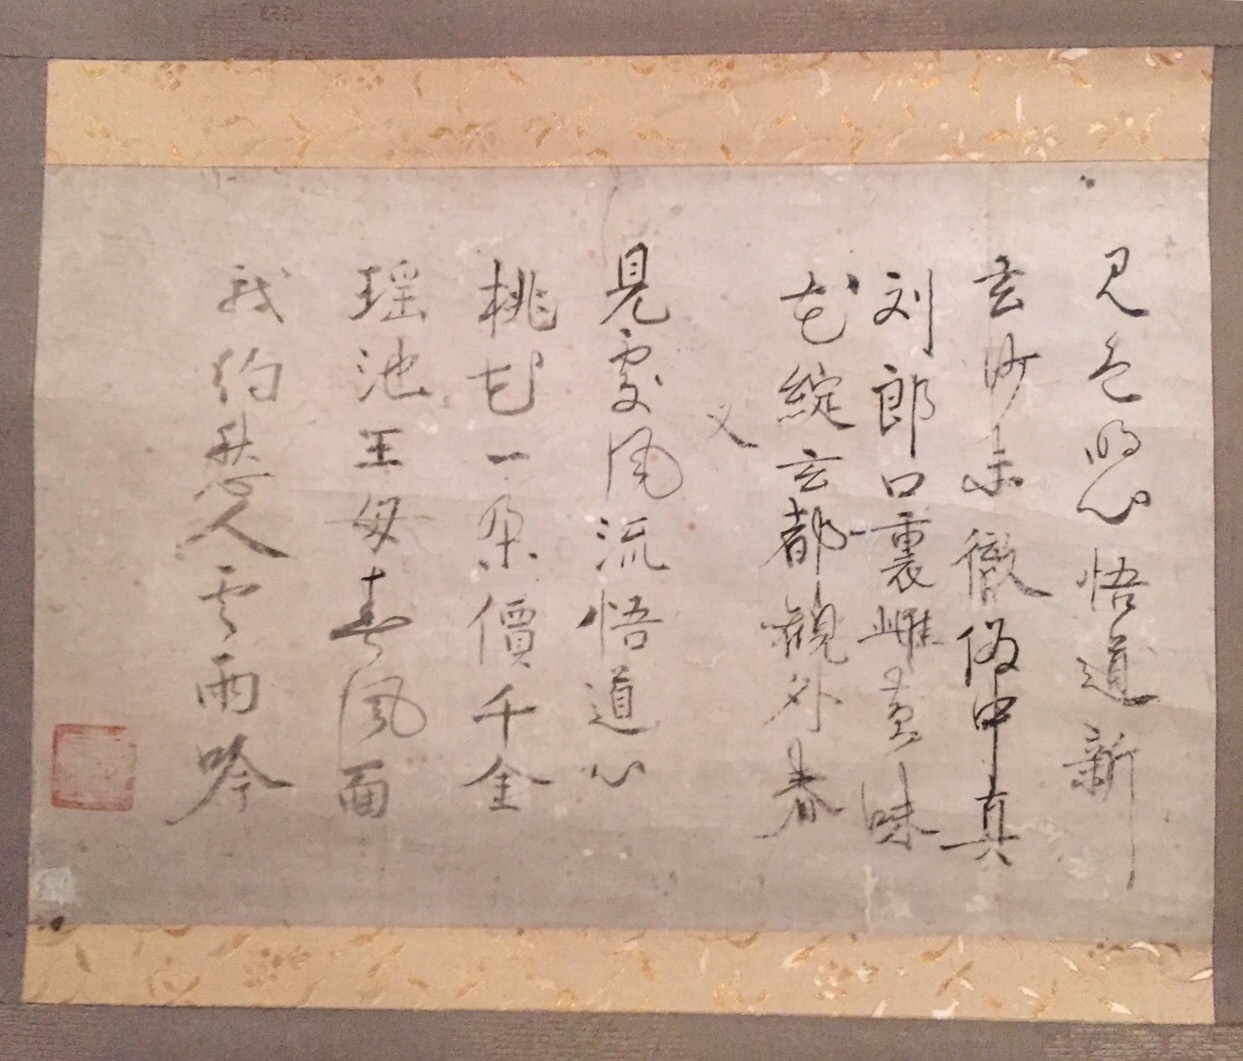 見色明心悟道新
玄沙未徹偽中真
刘郎口裏雌黄味
花綻玄都観外春
又
見處風流悟道心
桃花一朶價千金
瑶池王母春風面
我約愁人雲雨吟